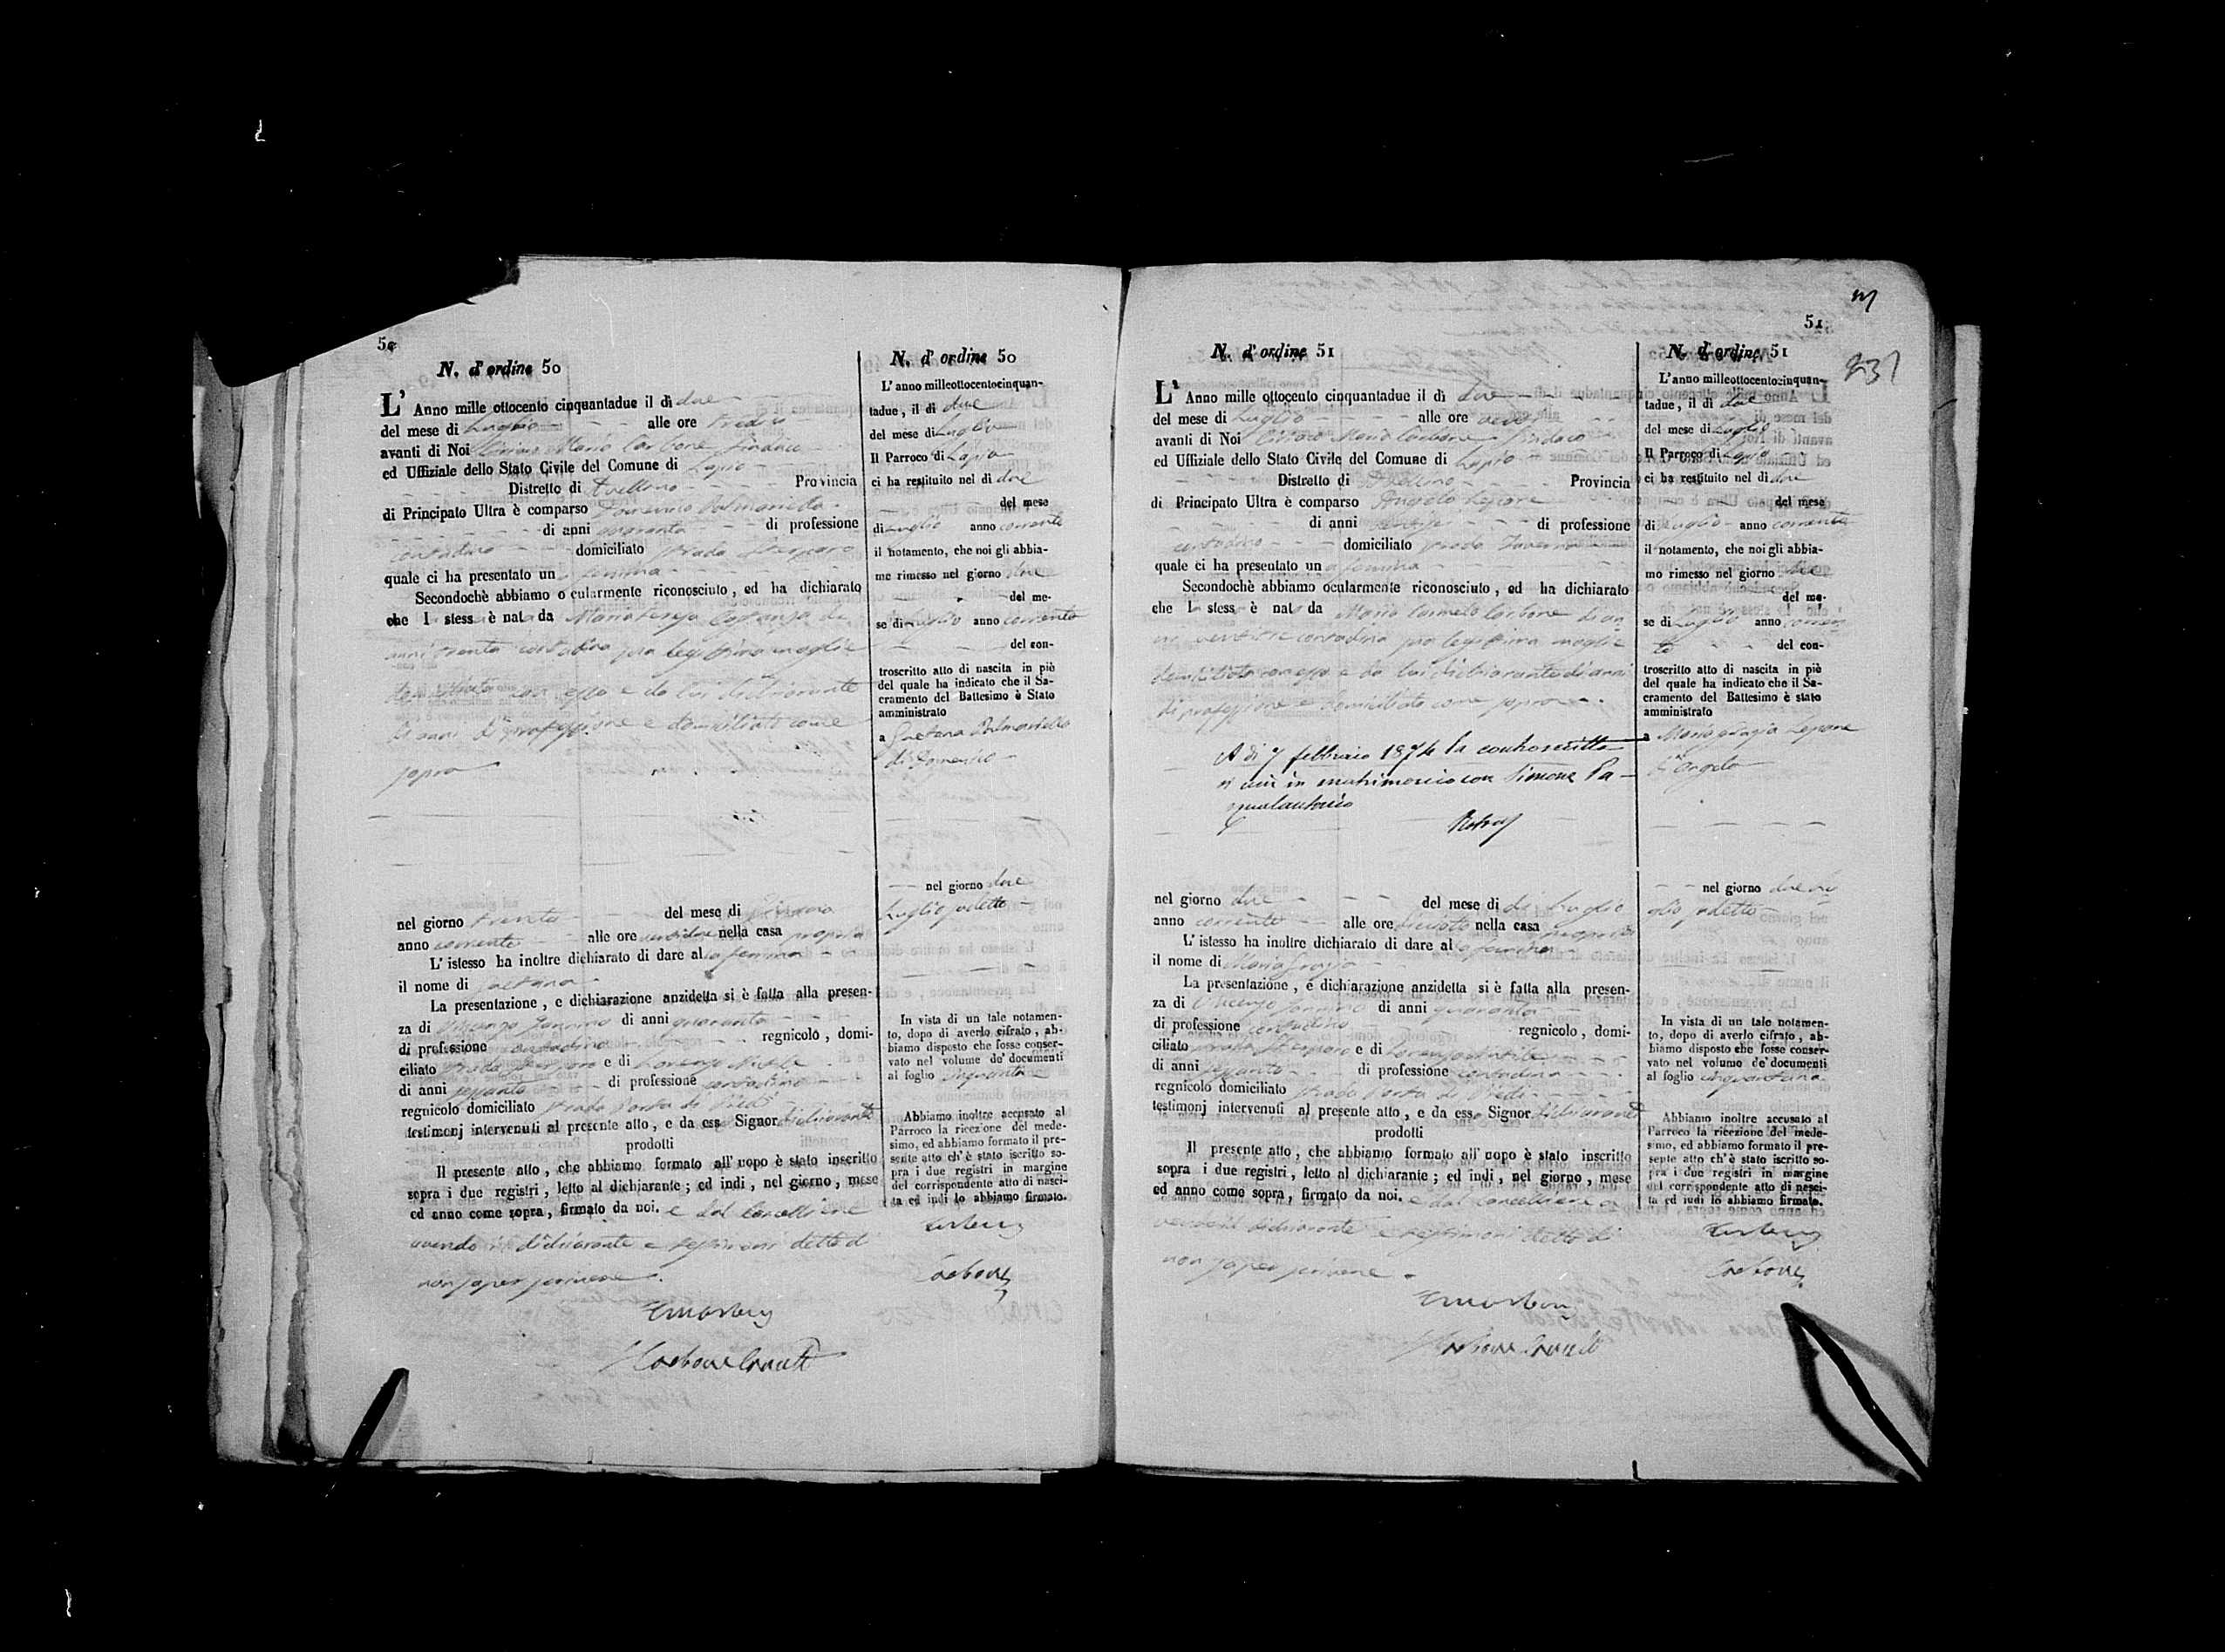 50
N. d'ordine 50
L' Anno mille ottocento cinquantadue il di due
del mese di Luglio alle ore
avanti di Noi Maria Carbone Sindaco
ed Uffiziale dello Stato Civile del Comune di Lapio
Distretto di Avellino Provincia
di Principato Ultra è comparso Domenico
di anni quaranta di professione
contadino domiciliato strada
quale ci ha presentato una femina
Secondochè abbiamo ocularmente riconosciuto, ed ha dichiarato
che l stess è nat da Maria Teresa di
anni trenta contadina sua legittima moglie
domiciliata con esso e da lui dichiarante
di anni di professione e domiciliato come
sopra
nel giorno trenta del mese di
anno corrente alle ore nella casa propria
L' istesso ha inoltre dichiarato di dare alla femina
il nome di Gaetana
La presentazione, e dichiarazione anzidetta si è fatta alla presen-
za di Vincenzo di anni quaranta
di professione contadino regnicolo, domi-
ciliato strada e di Lorenzo
di anni sessanta di professione contadino
regnicolo domiciliato strada Porta di
testimonj intervenuti al presente atto, e da ess Signor dichiarante
prodotti
Il presente atto, che abbiamo formato all' uopo è stato inscritto
sopra i due registri, letto al dichiarante; ed indi, nel giorno, mese
ed anno come sopra, firmato da noi. e dal Cancelliere
avendo il dichiarante e testimoni detto di
non saper scrivere.
N. d' ordine 50
L' anno milleottocentocinquan-
tadue, il di due
del mese di Luglio
Il Parroco di Lapio
ci ha restituito nel di due
del mese
di Luglio anno corrente
il notamento, che noi gli abbia-
mo rimesso nel giorno due
del me-
se di Luglio anno corrente
del con-
troscritto atto di nascita in piè
del quale ha indicato che il Sa-
cramento del Battesimo è Stato
amministrato
a Gaetana
di Domenico
nel giorno due
Luglio sudetto
In vista di un tale notamen-
to, dopo di averlo cifrato, ab-
biamo disposto che fosse conser-
vato nel volume de' documenti
al foglio cinquanta
Abbiamo inoltre accusato al
Parroco la ricezione del mede-
simo, ed abbiamo formato il pre-
sente atto ch' è stato iscritto so-
pra i due registri in margine
del corrispondente atto di nasci-
ta ed indi lo abbiamo firmato.
Carbone
51
231
N. d' ordine 51
L' Anno mille ottocento cinquantadue il di due
del mese di Luglio alle ore
avanti di Noi Maria Carbone Sindaco
ed Uffiziale dello Stato Civile del Comune di Lapio
Distretto di Avellino Provincia
di Principato Ultra è comparso Angelo Lepore
di anni di professione
contadino domiciliato strada Taverna
quale ci ha presentato una femina
Secondochè abbiamo ocularmente riconosciuto, ed ha dichiarato
che l stess è nat da Maria Carmela Carbone di an
ni ventitre contadina sua legittima moglie
domiciliata con esso e da lui dichiarante di anni
di professione e domiciliato come sopra
A di 7 febbraio 1874 la controscritta
si unì in matrimonio con Simone Pa-
squalantonio
nel giorno due del mese di di Luglio
anno corrente alle ore diciotto nella casa propria
L' istesso ha inoltre dichiarato di dare alla femina
il nome di Maria Grazia
La presentazione, e dichiarazione anzidetta si è fatta alla presen-
za di Vincenzo di anni quaranta
di professione contadino regnicolo, domi-
ciliato strada e di Lorenzo
di anni sessanta di professione contadino
regnicolo domiciliato strada Porta di
testimonj intervenuti al presente atto, e da esso Signor dichiarante
prodotti
Il presente atto, che abbiamo formato all' uopo è stato inscritto
sopra i due registri, letto al dichiarante; ed indi, nel giorno, mese
ed anno come sopra, firmato da noi. e dal cancelliere a
vendo il dichiarante e testimoni detto di
non saper scrivere.
N. d' ordine 51
L' anno milleottocentocinquan-
tadue, il di due
del mese di Luglio
Il Parroco di Lapio
ci ha restituito nel di due
del mese
di Luglio anno corrente
il notamento, che noi gli abbia-
mo rimesso nel giorno due
del me-
se di Luglio anno corren-
te del con-
troscritto atto di nascita in piè
del quale ha indicato che il Sa-
cramento del Battesimo è stato
amministrato
a Maria Grazia Lepore
di Angelo
nel giorno due lu
glio sudetto
In vista di un tale notamen-
to, dopo di averlo cifrato, ab-
biamo disposto che fosse conser-
vato nel volume de' documenti
al foglio cinquantuno
Abbiamo inoltre accusato al
Parroco la ricezione del mede-
simo, ed abbiamo formato il pre-
sente atto ch' è stato iscritto so-
pra i due registri in margine
del corrispondente atto di nasci-
ta ed indi lo abbiamo firmato.
Carbone